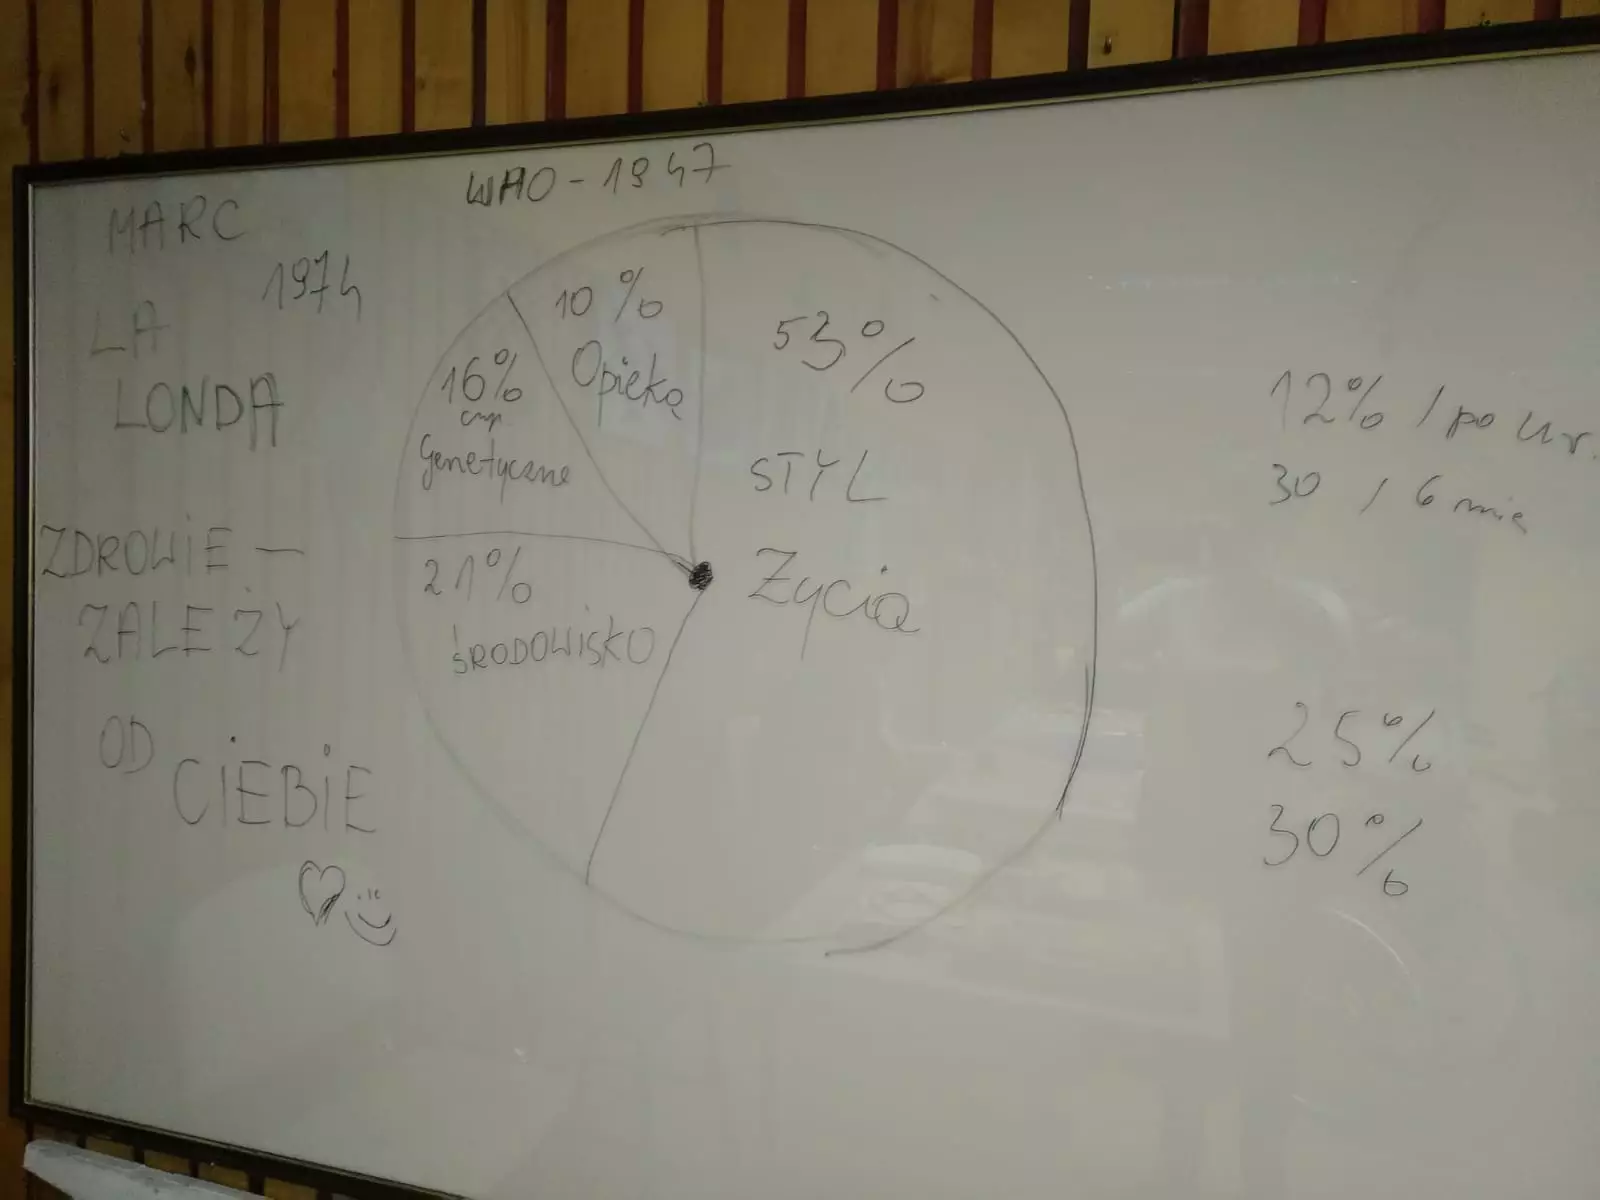 WHO - 1947
MARC
1974
LA
LONDA
ZDROWIE —
ZALEŻY
OD
CIEBIE
10 %
Opieka
16%
czyn
Genetyczne
21%
ŚRODOWISKO
53%
STYL
Życia
12% / po ur.
30 / 6 mie
25%
30%